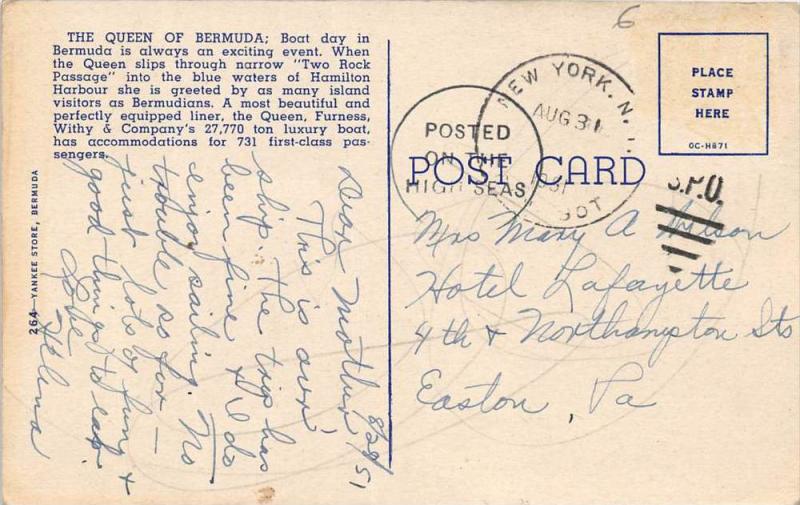 THE QUEEN OF BERMUDA; Boat day in
Bermuda is always an exciting event. When
the Queen slips through narrow "Two Rock
Passage" into the blue waters of Hamilton
Harbour she is greeted by as many island
visitors as Bermudians. A most beautiful and
perfectly equipped liner, the Queen, Furness,
Withy & Company's 27,770 ton luxury boat,
has accommodations for 731 first-class pas-
sengers.
264—YANKEE STORE, BERMUDA
8/28/51
Dear Mother,
This is our
ship. The trip has
been fine & I do
enjoy sailing. No
trouble so far —
just lots of fun &
good things to eat.
Love
Helena
6
POSTED
ON THE
HIGH SEAS
NEW YORK, N.
AUG 31
1951
POST CARD
PLACE
STAMP
HERE
OC-H871
S.P.O.
Mrs Mary A Wilson
Hotel Lafayette
4th & Northampton Sts
Easton, Pa